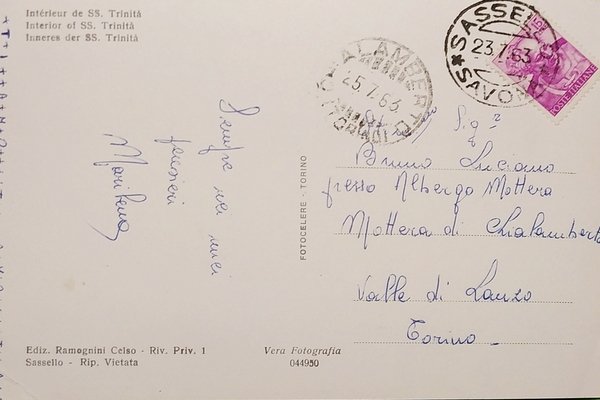 Intérieur de SS. Trinitá
Interior of SS. Trinitá
Inneres der SS. Trinitá
CHIALAMBERTO
25.7.63
SASSELLO
23.7.63
*SAVONA*
POSTE ITALIANE
Sempre nei miei
pensieri
Marilena
FOTOCELERE - TORINO
Sig.
Bruno Luciano
presso Albergo Mottera
Mottera di Chialamberto
Valle di Lanzo
Torino
Ediz. Ramognini Celso - Riv. Priv. 1
Sassello - Rip. Vietata
Vera Fotografia
044950